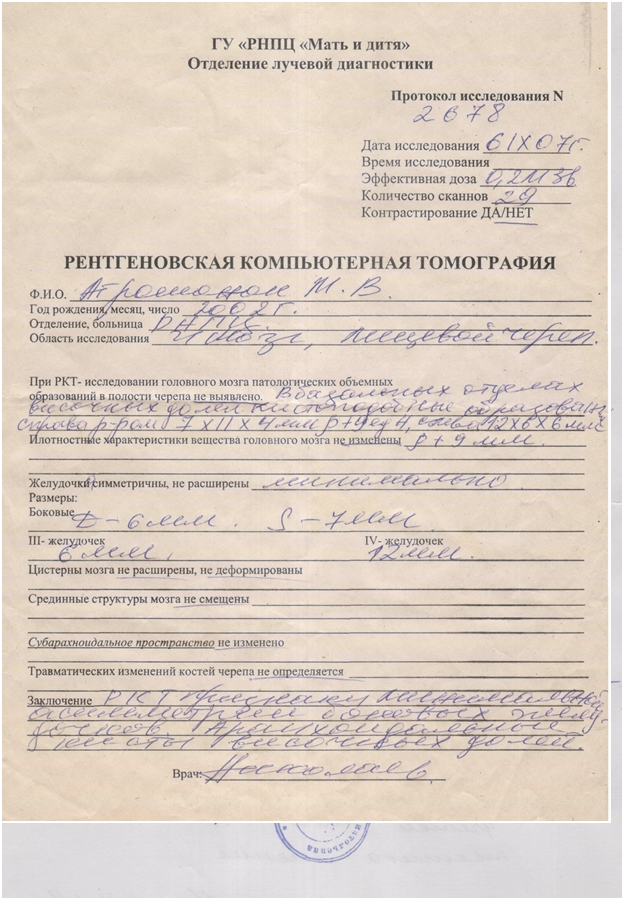 ГУ «РНПЦ «Мать и дитя»
Отделение лучевой диагностики
Протокол исследования N
2678
Дата исследования 6 IX 07г.
Время исследования
Эффективная доза 0,2 мЗв
Количество сканнов 29
Контрастирование ДА/НЕТ
РЕНТГЕНОВСКАЯ КОМПЬЮТЕРНАЯ ТОМОГРАФИЯ
Ф.И.О. М. В.
Год рождения, месяц, число 2002г.
Отделение, больница
Область исследования мозг, лицевой череп.
При РКТ- исследовании головного мозга патологических объемных
образований в полости черепа не выявлено. В базальных отделах
височных долей кистоподобные образования
справа р-ром 7 х 11 х 4 мм 12х6х6 мм
Плотностные характеристики вещества головного мозга не изменены ρ + 9
Желудочки симметричны, не расширены минимально.
Размеры:
Боковые D – 6 мм. S – 7 мм
III- желудочек IV- желудочек
6 мм. 12 мм.
Цистерны мозга не расширены, не деформированы
Срединные структуры мозга не смещены
Субарахноидальное пространство не изменено
Травматических изменений костей черепа не определяется
Заключение РКТ признаки минимальной
асимметрии боковых желу-
дочков. Арахноидальные
кисты височных долей.
Врач: Николаев